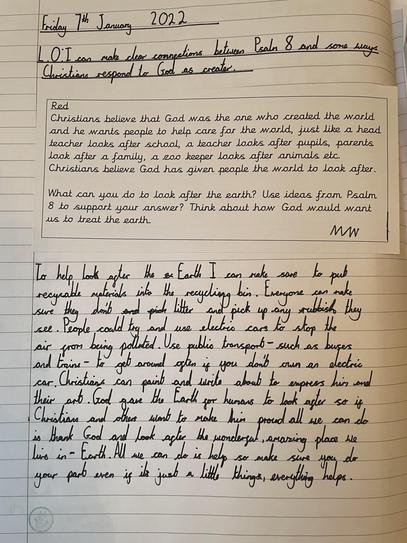 Friday 7th January 2022
L.O: I can make clear connections between Psalm 8 and some ways
Christians respond to God as creator.
Red
Christians believe that God was the one who created the world
and he wants people to help care for the world, just like a head
teacher looks after school, a teacher looks after pupils, parents
look after a family, a zoo keeper looks after animals etc.
Christians believe God has given people the world to look after.
What can you do to look after the earth? Use ideas from Psalm
8 to support your answer? Think about how God would want
us to treat the earth.
To help look after the Earth I can make sure to put
recycable materials into the recycling bin. Everyone can make
sure they dont and pick litter and pick up any rubbish they
see. People could try and use electric cars to stop the
air from being polluted. Use public transport - such as buses
and trains - to get around often if you don't own an electric
car. Christians can paint and write about to express him and
their art. God gave the Earth for humans to look after so if
Christians and others want to make him proud all we can do
is thank God and look after the wonderful, amazing place we
live in - Earth. All we can do is help so make sure you do
your part even if its just a little things, everything helps.